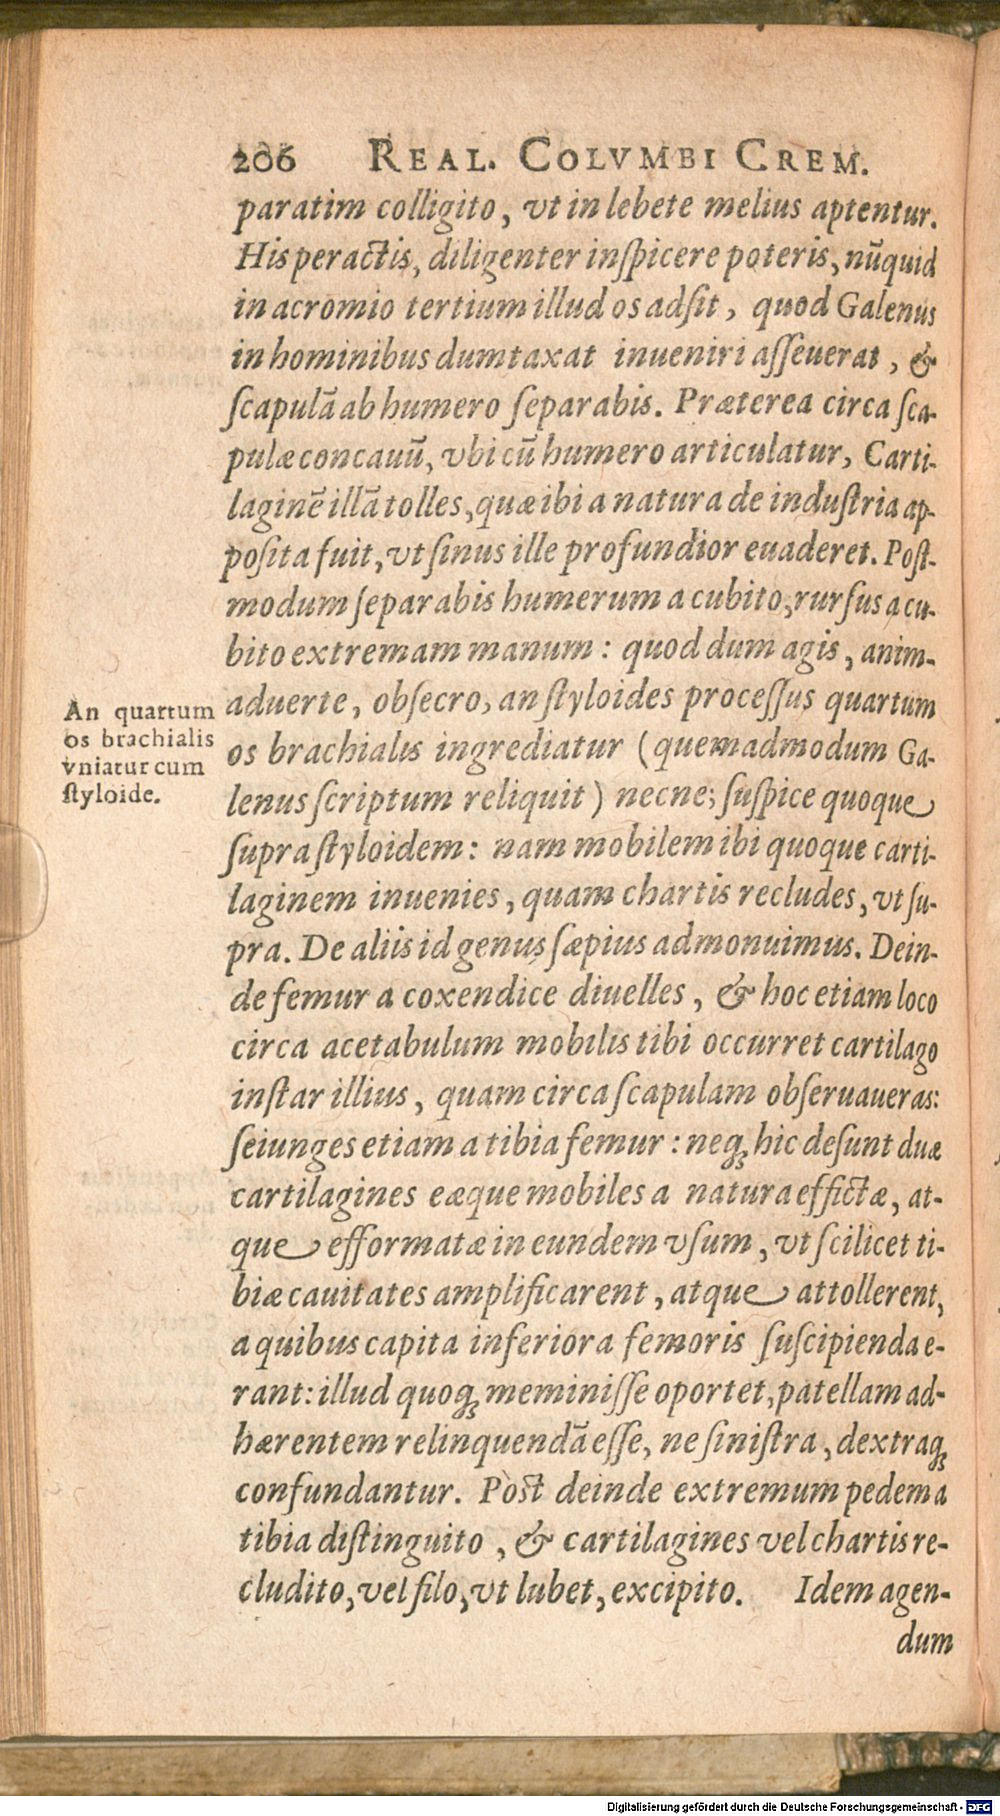 206 REAL. COLVMBI CREM.
paratim colligito, vt in lebete melius aptentur.
His peractis, diligenter inſpicere poteris, nũquid
in acromio tertium illud os adſit, quod Galenus
in hominibus dumtaxat inueniri aſſeuerat, &
ſcapulã ab humero ſeparabis. Præterea circa ſca-
pulæ concauũ, vbi cũ humero articulatur, Carti-
laginẽ illã tolles, quæ ibi a natura de induſtria ap-
poſita fuit, vt ſinus ille profundior euaderet. Poſt-
modum ſeparabis humerum a cubito, rurſus a cu-
bito extremam manum: quod dum agis, anim-
aduerte, obſecro, an ſtyloides proceſſus quartum
os brachialis ingrediatur (quemadmodum Ga-
lenus ſcriptum reliquit) necne; ſuſpice quoque
ſupra ſtyloidem: nam mobilem ibi quoque carti-
laginem inuenies, quam chartis recludes, vt ſu-
pra. De aliis id genus ſæpius admonuimus. Dein-
de femur a coxendice diuelles, & hoc etiam loco
circa acetabulum mobilis tibi occurret cartilago
inſtar illius, quam circa ſcapulam obſeruaueras:
ſeiunges etiam a tibia femur: neqꝫ hic deſunt duæ
cartilagines eæque mobiles a natura effictæ, at-
que efformatæ in eundem vſum, vt ſcilicet ti-
biæ cauitates amplificarent, atque attollerent,
a quibus capita inferiora femoris ſuſcipienda e-
rant: illud quoqꝫ meminiſſe oportet, patellam ad-
hærentem relinquendã eſſe, ne ſiniſtra, dextraqꝫ
confundantur. Pòst deinde extremum pedem a
tibia diſtinguito, & cartilagines vel chartis re-
cludito, vel filo, vt lubet, excipito. Idem agen-
dum
An quartum
os brachialis
vniatur cum
ſtyloide.
Digitalisierung gefördert durch die Deutsche Forschungsgemeinschaft - DFG